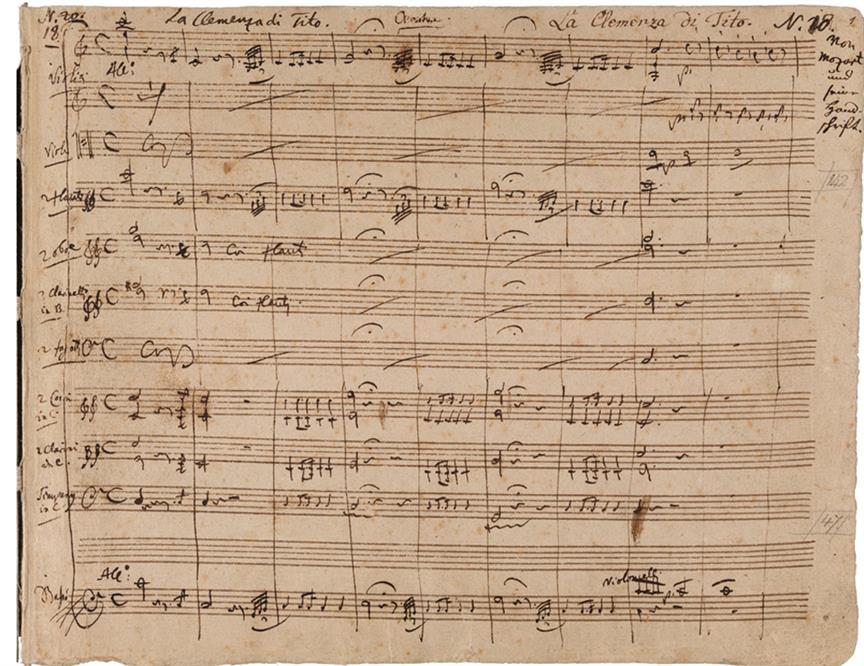 N. 20. La Clemenza di Tito. Overtura. La Clemenza di Tito. N. 18.
18.
Von
Mozart
und
seine
Hand
schrift.
All:
Violin
Viole
2 flauti
2 oboe Coi flauti
2 Clarinetti Coi flauti
in B.
2 fagotti
2 Corni
in C.
2 Clarini
in C.
Timpany
in C.
All: Violoncelli
Bassi
142
471